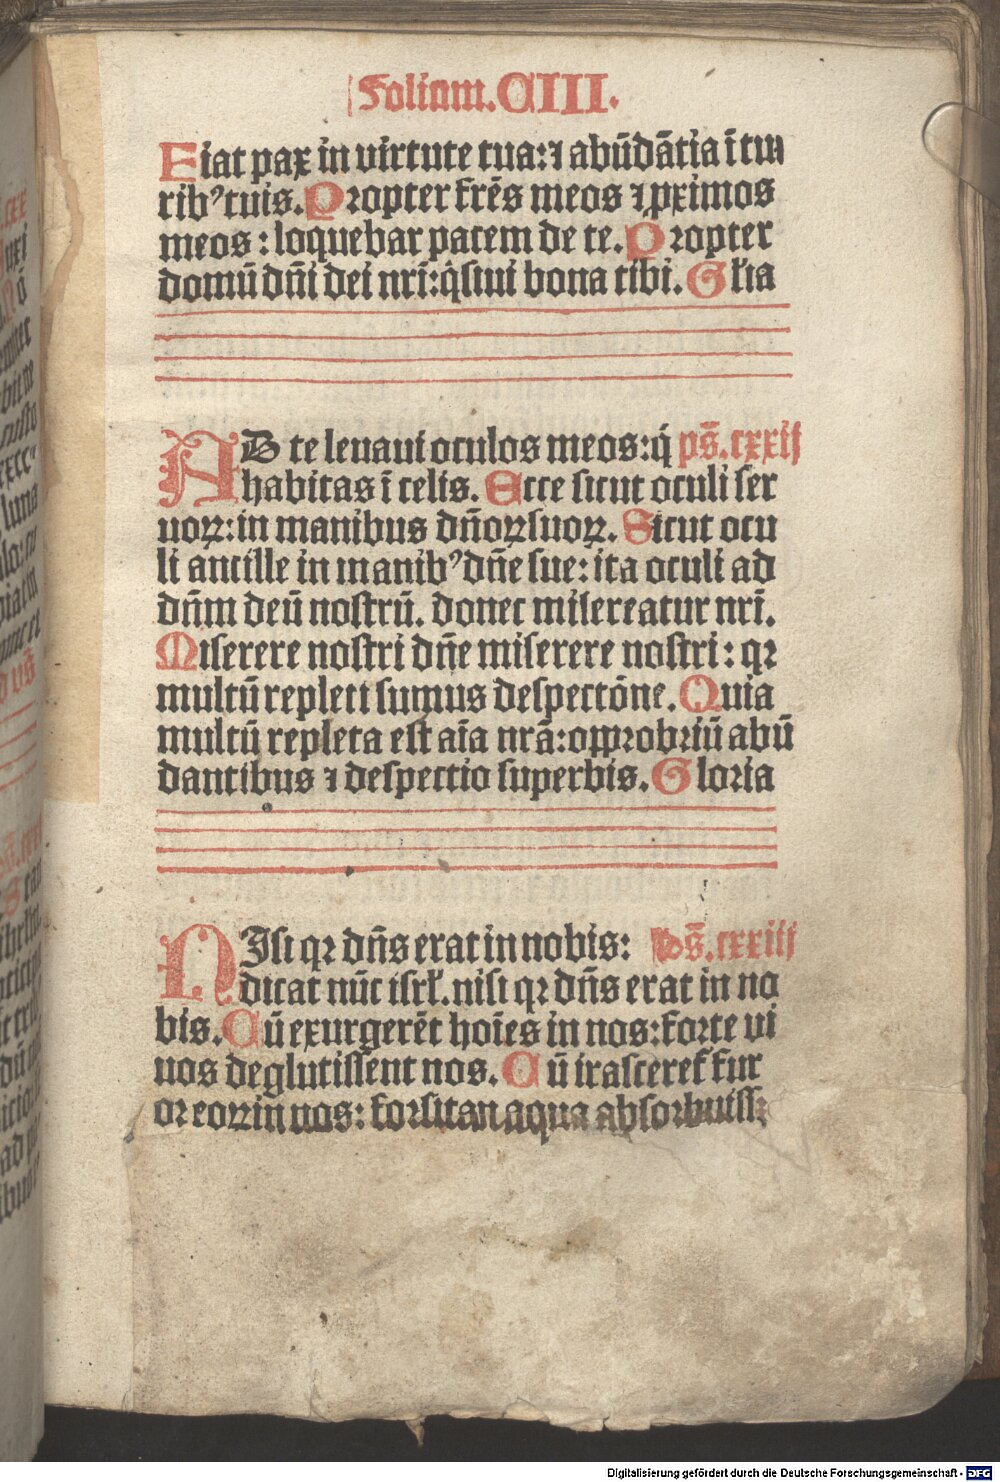 Folium. CIII.
Fiat pax in virtute tua: ⁊ abūdātia ī tur
rib⁹ tuis. Propter frēs meos ⁊ ꝓximos
meos: loquebar pacem de te. Propter
domū dn̄i dei nr̄i: q̄siui bona tibi. Gl'ia
AD te leuaui oculos meos: q̇ ps̄. cxxij
habitas ī celis. Ecce sicut oculi ser
uoꝝ: in manibus dn̄oꝝ suoꝝ. Sicut ocu
li ancille in manib⁹ dn̄e sue: ita oculi ad
dn̄m deū nostrū. donec misereatur nr̄i.
Miserere nostri dn̄e miserere nostri: qꝛ
multū repleti sumus despectōne. Quia
multū repleta est aīa nr̄a: opprobriū abū
dantibus ⁊ despectio superbis. Gloria
NIsi qꝛ dn̄s erat in nobis: Ps̄. cxxiij
dicat nūc isrl'. nisi qꝛ dn̄s erat in no
bis. Cū exurgerēt hoīes in nos: forte vi
uos deglutissent nos. Cū irascereť fur
or eoꝝ in nos: forsitan aqua absorbuissꝫ
Digitalisierung gefördert durch die Deutsche Forschungsgemeinschaft - DFG